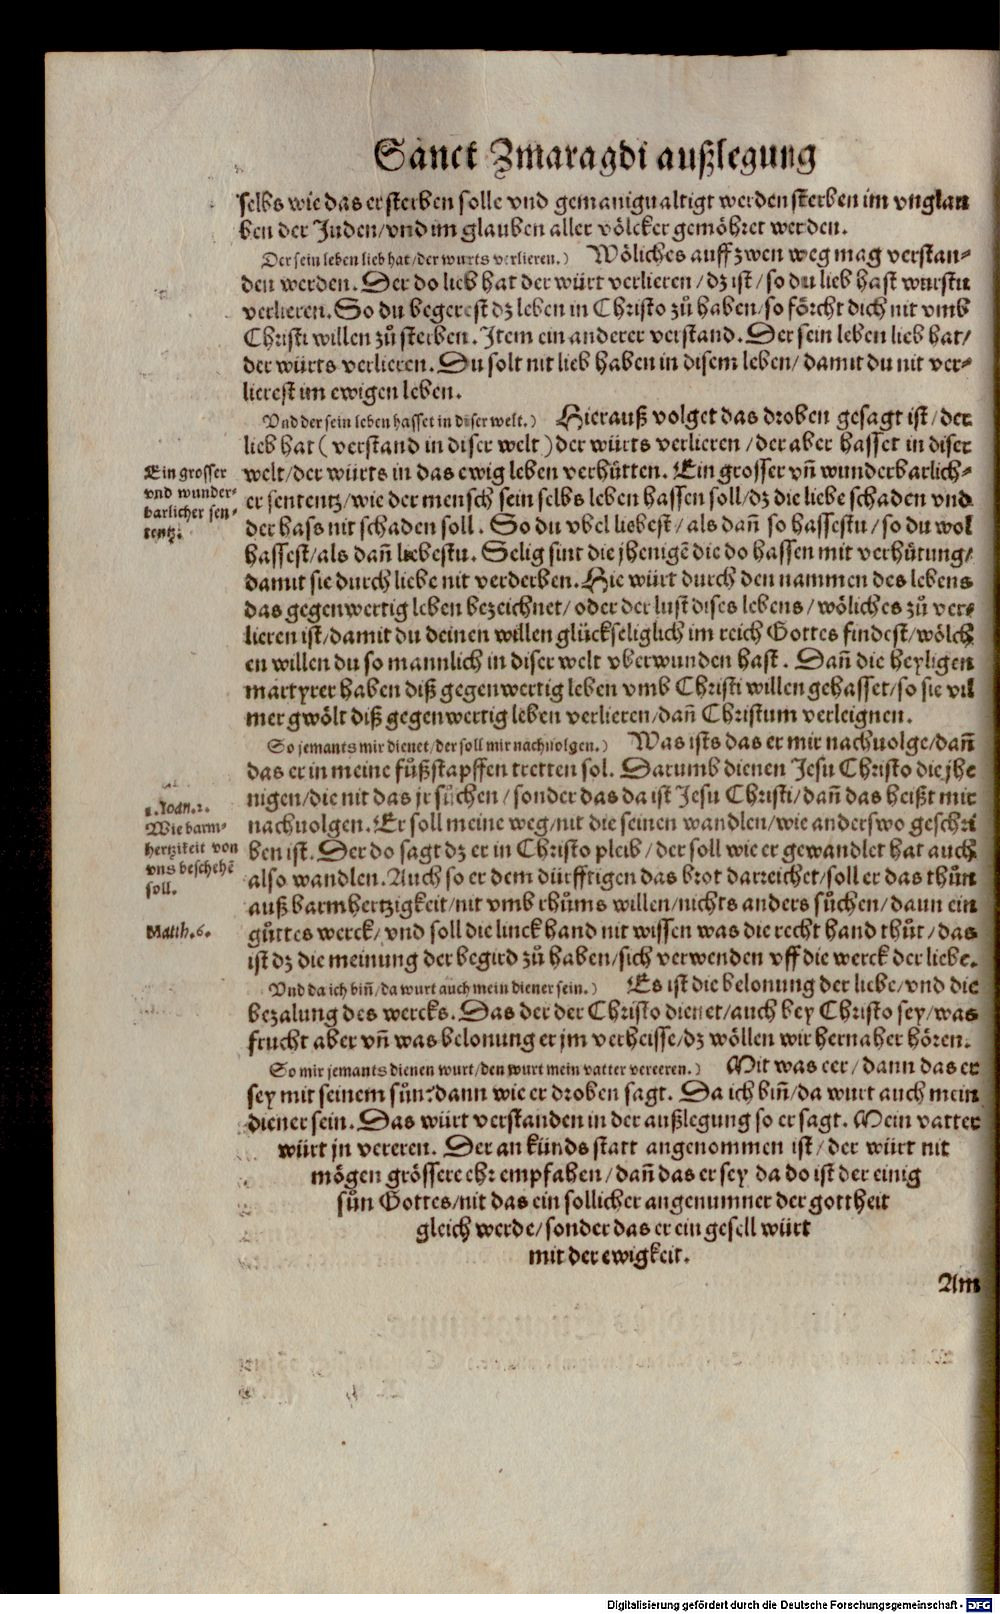 Sanct Zmaragdi außlegung
selbs wie das er sterben solle vnd gemanigualtigt werden sterben im vnglau
ben der Juden/vnd im glauben aller völcker gemöhret werden.
Der sein leben lieb hat/der wurts verlieren.) Wöliches auff zwen weg mag verstan-
den werden. Der do lieb hat der würt verlieren/dz ist/so du lieb hast wurstu
verlieren. So du begerest dz leben in Christo zů haben/so förcht dich nit vmb
Christi willen zů sterben. Item ein anderer verstand. Der sein leben lieb hat/
der würts verlieren. Du solt nit lieb haben in disem leben/damit du nit ver-
lierest im ewigen leben.
Vnd der sein leben hasset in diser welt.) Hierauß volget das droben gesagt ist/der
lieb hat (verstand in diser welt) der würts verlieren/der aber hasset in diser
welt/der würts in das ewig leben verhütten. Ein grosser vñ wunderbarlich-
er sententz/wie der mensch sein selbs leben hassen soll/dz die liebe schaden vnd
der hass nit schaden soll. So du vbel liebest/als dañ so hassestu/so du wol
hassest/als dañ liebestu. Selig sint die jhenigẽ die do hassen mit verhütung/
damit sie durch liebe nit verderben. Hie würt durch den nammen des lebens
das gegenwertig leben bezeichnet/oder der lust dises lebens/wöliches zů ver-
lieren ist/damit du deinen willen glückseliglich im reich Gottes findest/wölch
en willen du so mannlich in diser welt vberwunden hast. Dañ die heyligen
martyrer haben diß gegenwertig leben vmb Christi willen gehasset/so sie vil
mer gwölt diß gegenwertig leben verlieren/dañ Christum verleignen.
So jemants mir dienet/der soll mir nachuolgen.) Was ists das er mir nachuolge/dañ
das er in meine fůßstapffen tretten sol. Darumb dienen Jesu Christo die jhe
nigen/die nit das jr sůchen/sonder das da ist Jesu Christi/dañ das heißt mir
nachuolgen. Er soll meine weg/nit die seinen wandlen/wie anderswo geschri
ben ist. Der do sagt dz er in Christo pleib/der soll wie er gewandlet hat auch
also wandlen. Auch so er dem dürfftigen das brot darreichet/soll er das thůn
auß barmhertzigkeit/nit vmb rhůms willen/nichts anders sůchen/dann ein
gůttes werck/vnd soll die linck hand nit wissen was die recht hand thůt/das
ist dz die meinung der begird zů haben/sich verwenden vff die werck der liebe.
Vnd da ich biñ/da wurt auch mein diener sein.) Es ist die belonung der liebe/vnd die
bezalung des wercks. Das der der Christo dienet/auch bey Christo sey/was
frucht aber vñ was belonung er jm verheisse/dz wöllen wir hernaher hören.
So mir jemants dienen wurt/den wurt mein vatter vereeren.) Mit was eer/dann das er
sey mit seinem sůn: dann wie er droben sagt. Da ich biñ/da wurt auch mein
diener sein. Das würt verstanden in der außlegung so er sagt. Mein vatter
würt jn vereren. Der an künds statt angenommen ist/der würt nit
mögen grössere ehr empfahen/dañ das er sey da do ist der einig
sůn Gottes/nit das ein sollicher angenumner der gottheit
gleich werde/sonder das er ein gesell würt
mit der ewigkeit.
Am
Ein grosser
vnd wunder-
barlicher sen-
tentz.
1. Joan. 2.
Wie barm-
hertzikeit von
vns beschehẽ
soll.
Matth. 6.
Digitalisierung gefördert durch die Deutsche Forschungsgemeinschaft - DFG